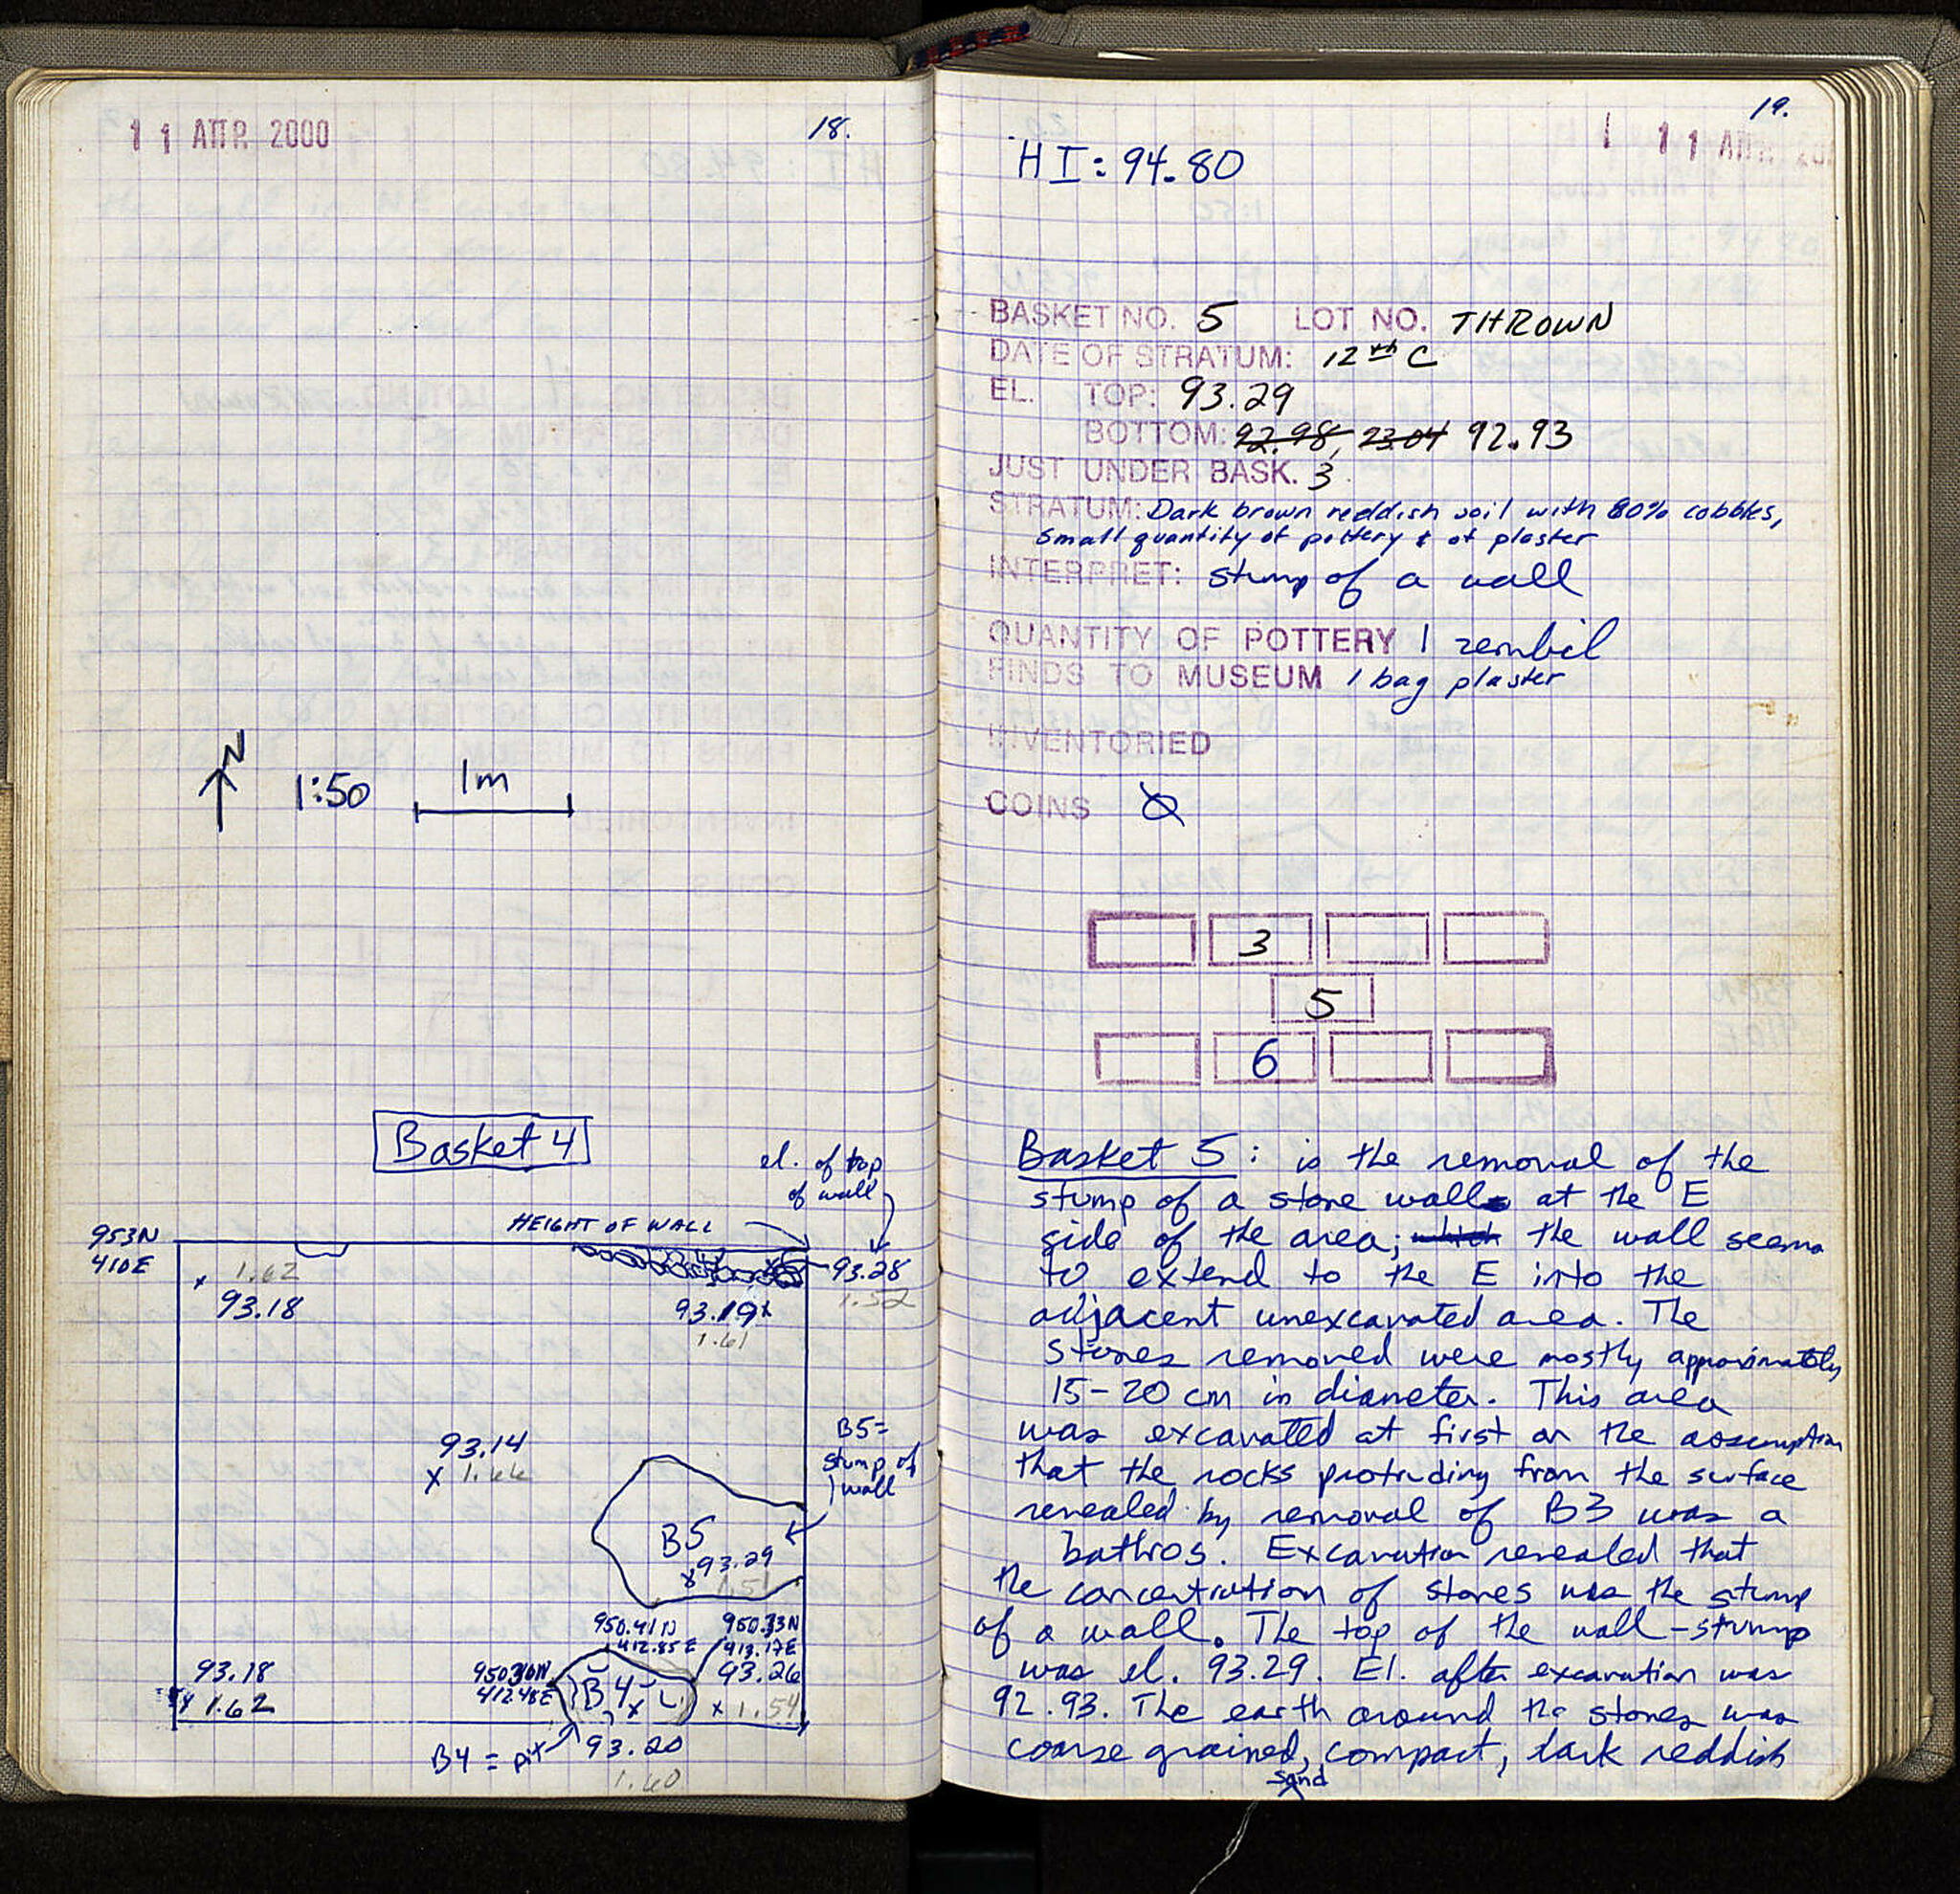 11 ΑΠΡ. 2000
18.
N
1:50
1m
Basket 4
el. of top
of wall
HEIGHT OF WALL
953N
410E
1.62
93.18
93.28
1.52
93.19x
1.61
93.14
x 1.66
B5=
stump of
wall
B5
x93.29
1.51
950.41N
412.85E
950.33N
413.17E
93.26
x 1.54
412.48E
B4
x
93.18
x 1.62
B4 = pit
93.20
1.60
19.
11 ΑΠΡ. 20
HI: 94.80
BASKET NO. 5 LOT NO. THROWN
DATE OF STRATUM: 12th C
EL. TOP: 93.29
BOTTOM: 92.98, 23.04 92.93
JUST UNDER BASK. 3
STRATUM: Dark brown reddish soil with 80% cobbles,
small quantity of pottery & of plaster
INTERPRET: stump of a wall
QUANTITY OF POTTERY 1 zembil
FINDS TO MUSEUM 1 bag plaster
INVENTORIED
COINS Ø
3
5
6
Basket 5: is the removal of the
stump of a stone wall at the E
side of the area; which the wall seems
to extend to the E into the
adjacent unexcavated area. The
stones removed were mostly approximately
15-20 cm in diameter. This area
was excavated at first on the assumption
that the rocks protruding from the surface
revealed by removal of B3 was a
bothros. Excavation revealed that
the concentration of stones was the stump
of a wall. The top of the wall-stump
was el. 93.29. El. after excavation was
92.93. The earth around the stones was
coarse grained, compact, dark reddish
sand